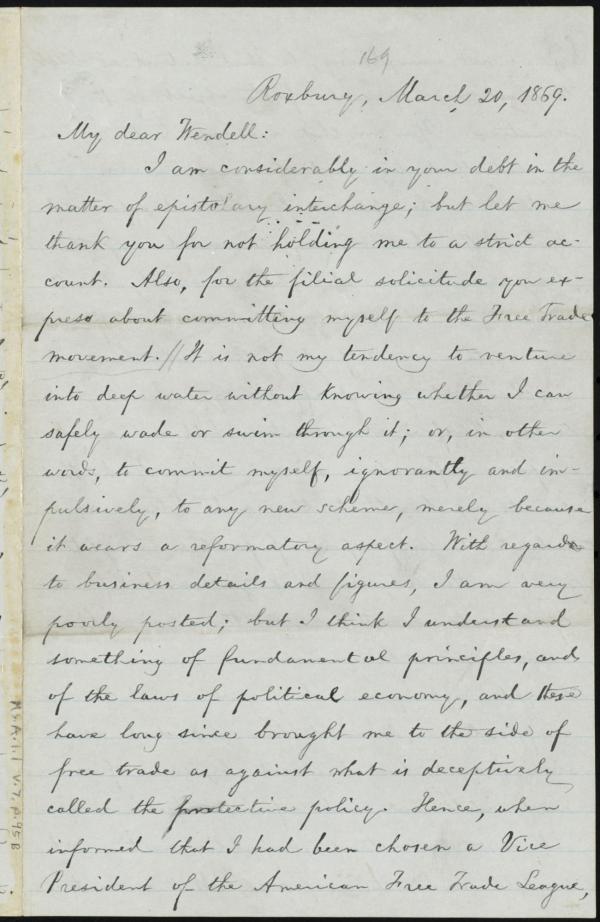 169
Roxbury, March 20, 1869.
My dear Wendell:
I am considerably in your debt in the
matter of epistolary interchange; but let me
thank you for not holding me to a strict ac-
count. Also, for the filial solicitude you ex-
press about committing myself to the Free Trade
movement. // It is not my tendency to venture
into deep water without knowing whether I can
safely wade or swim through it; or, in other
words, to commit myself, ignorantly and im-
pulsively, to any new scheme, merely because
it wears a reformatory aspect. With regards
to business details and figures, I am very
poorly posted; but I think I understand
something of fundamental principles, and
of the laws of political economy, and these
have long since brought me to the side of
free trade as against what is deceptively
called the protective policy. Hence, when
informed that I had been chosen a Vice
President of the American Free Trade League,
Ms.A.1.1 V.7, p.95B